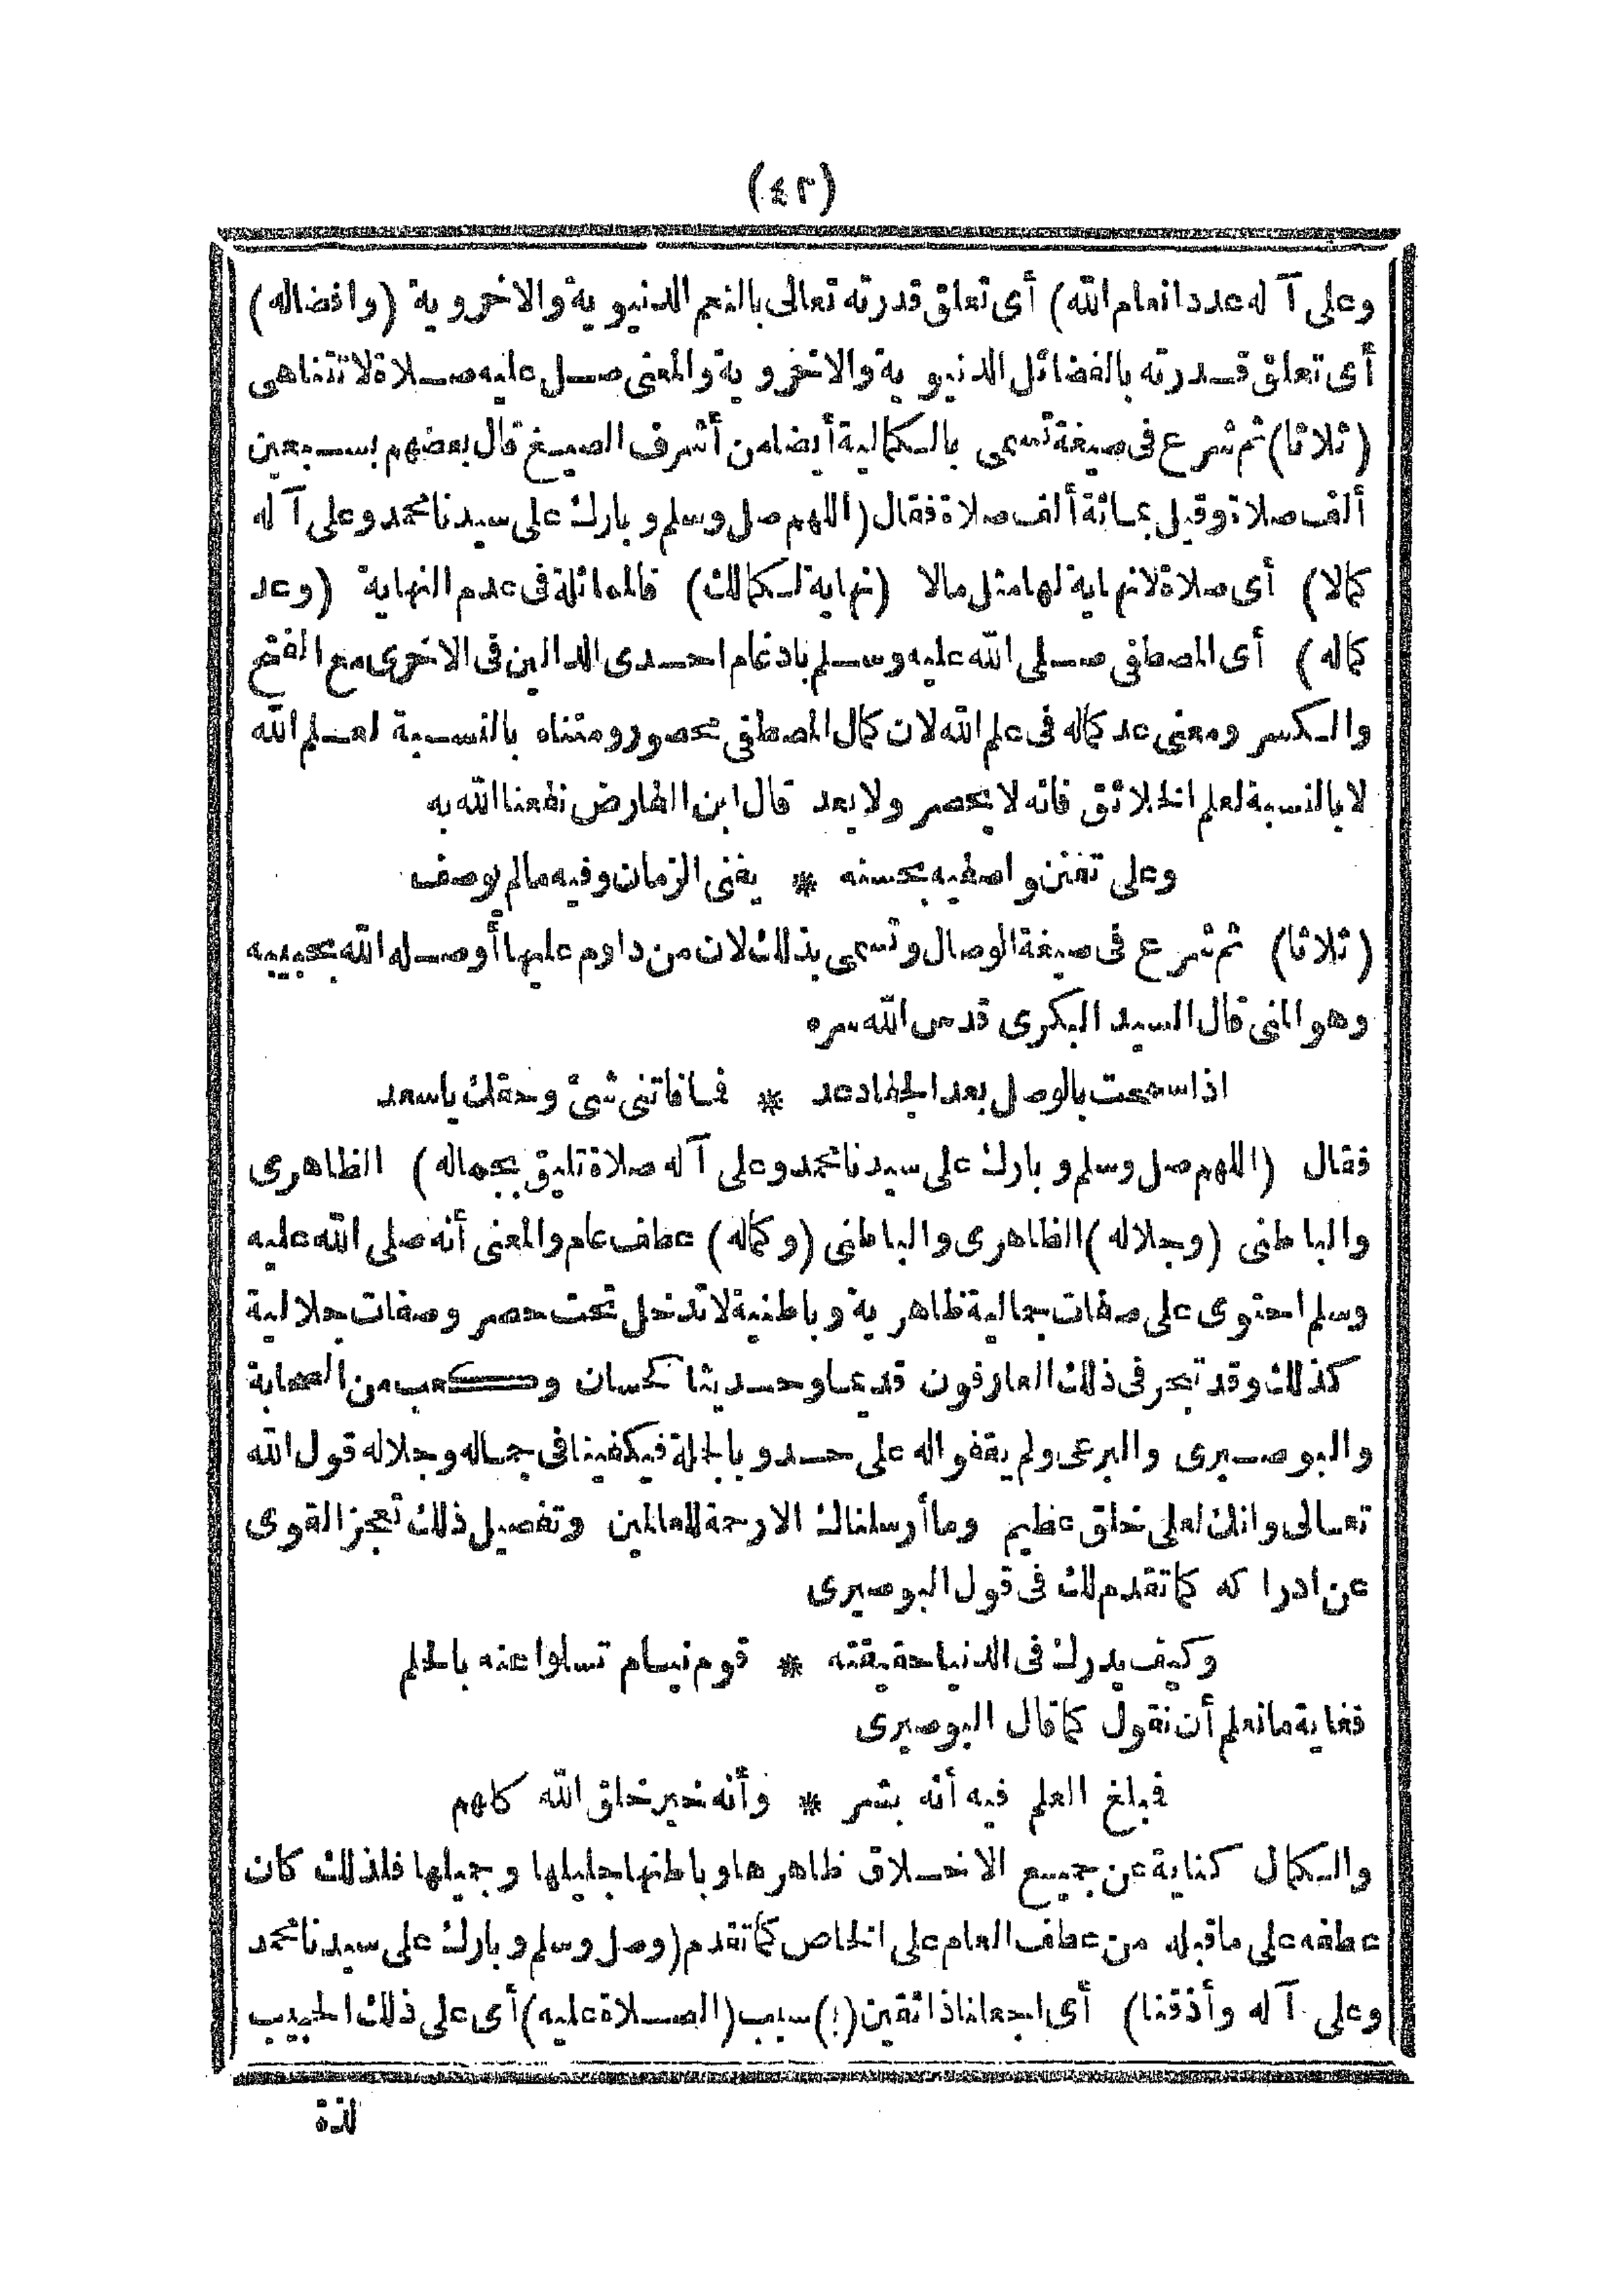 (٤٢)
وعلى آله عدد انعام الله) أى تعلق قدرته تعالى بالنعم الدنيوية والاخروية (وافضاله)
أى تعلق قدرته بالفضائل الدنيوية والاخروية والمعنى صل عليه صلاة لا تتناهى
(ثلاثا) ثم شرع فى صيغة تسمى بالكمالية أيضا من أشرف الصيغ قال بعضهم بسبعين
ألف صلاة وقيل بمائة ألف صلاة فقال (اللهم صل وسلم وبارك على سيدنا محمد وعلى آله
كمالا) أى صلاة لانهاية لها مثل مالا (نهاية لكمالك) فالمماثلة فى عدم النهاية (وعد
كماله) أى المصطفى صلى الله عليه وسلم بادغام احدى الدالين فى الاخرى مع الفتح
والكسر ومعنى عد كماله فى علم الله لان كمال المصطفى محصور ومتناه بالنسبة لعلم الله
لا بالنسبة لعلم الخلائق فانه لا يحصر ولا يعد قال ابن الفارض نفعنا الله به
وعلى تفنن واصفيه بحسنه * يفنى الزمان وفيه مالم يوصف
(ثلاثا) ثم شرع فى صيغة الوصال وتسمى بذلك لان من داوم عليها أوصله الله بحبيبه
وهو المنى قال السيد البكرى قدس الله سره
اذا سمحت بالوصل بعد الجفا دعد * فما فاتنى شئ وحقك ياسعد
فقال (اللهم صل وسلم وبارك على سيدنا محمد وعلى آله صلاة تليق بجماله) الظاهرى
والباطنى (وجلاله) الظاهرى والباطنى (وكماله) عطف عام والمعنى أنه صلى الله عليه
وسلم احتوى على صفات جمالية ظاهرية وباطنية لا تدخل تحت حصر وصفات جلالية
كذلك وقد تبحر فى ذلك العارفون قديما وحديثا كحسان وكعب من الصحابة
والبوصيرى والبرعى ولم يقفوا له على حد وبالجملة فيكفينا فى جماله وجلاله قول الله
تعالى وانك لعلى خلق عظيم وما أرسلناك الا رحمة للعالمين وتفصيل ذلك تعجز القوى
عن ادراكه كما تقدم لك فى قول البوصيرى
وكيف يدرك فى الدنيا حقيقته * قوم نيام تسلوا عنه بالحلم
فغاية ما نعلم أن نقول كما قال البوصيرى
فبلغ العلم فيه أنه بشر * وأنه خير خلق الله كلهم
والكمال كناية عن جميع الاخلاق ظاهرها وباطنها جليلها وجميلها فلذلك كان
عطفه على ماقبله من عطف العام على الخاص كما تقدم (وصل وسلم وبارك على سيدنا محمد
وعلى آله وأذقنا) أى اجعلنا ذائقين (ب) سبب (الصلاة عليه) أى على ذلك الحبيب
لذة